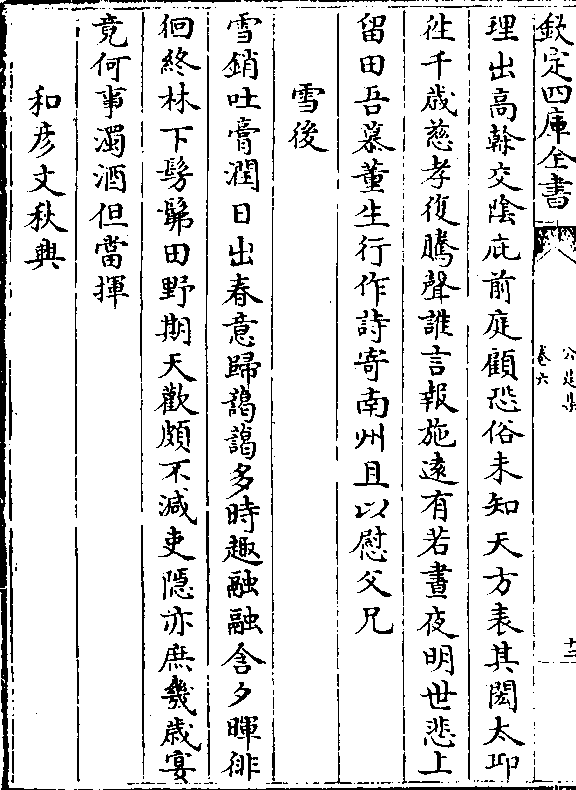 欽定四庫全書
公是集
卷六
十三
理出高榦交陰庇前庭顧恐俗未知天方表其閎太丘
往千歳慈孝復騰聲誰言報施遠有若晝夜明世悲上
留田吾慕董生行作詩寄南州且以慰父兄
雪後
雪銷吐膏潤日出春意歸藹藹多時趣融融含夕暉徘
徊終林下髣髴田野期天歡頗不減吏隱亦庶幾歳宴
竟何事濁酒但當揮
和彦文秋興